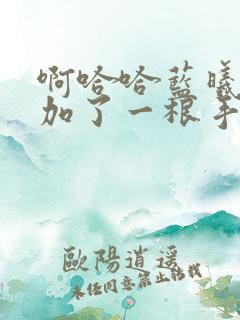 啊哈哈蓝曦
加了一根手
歐陽逍遥
未经同意禁止转载